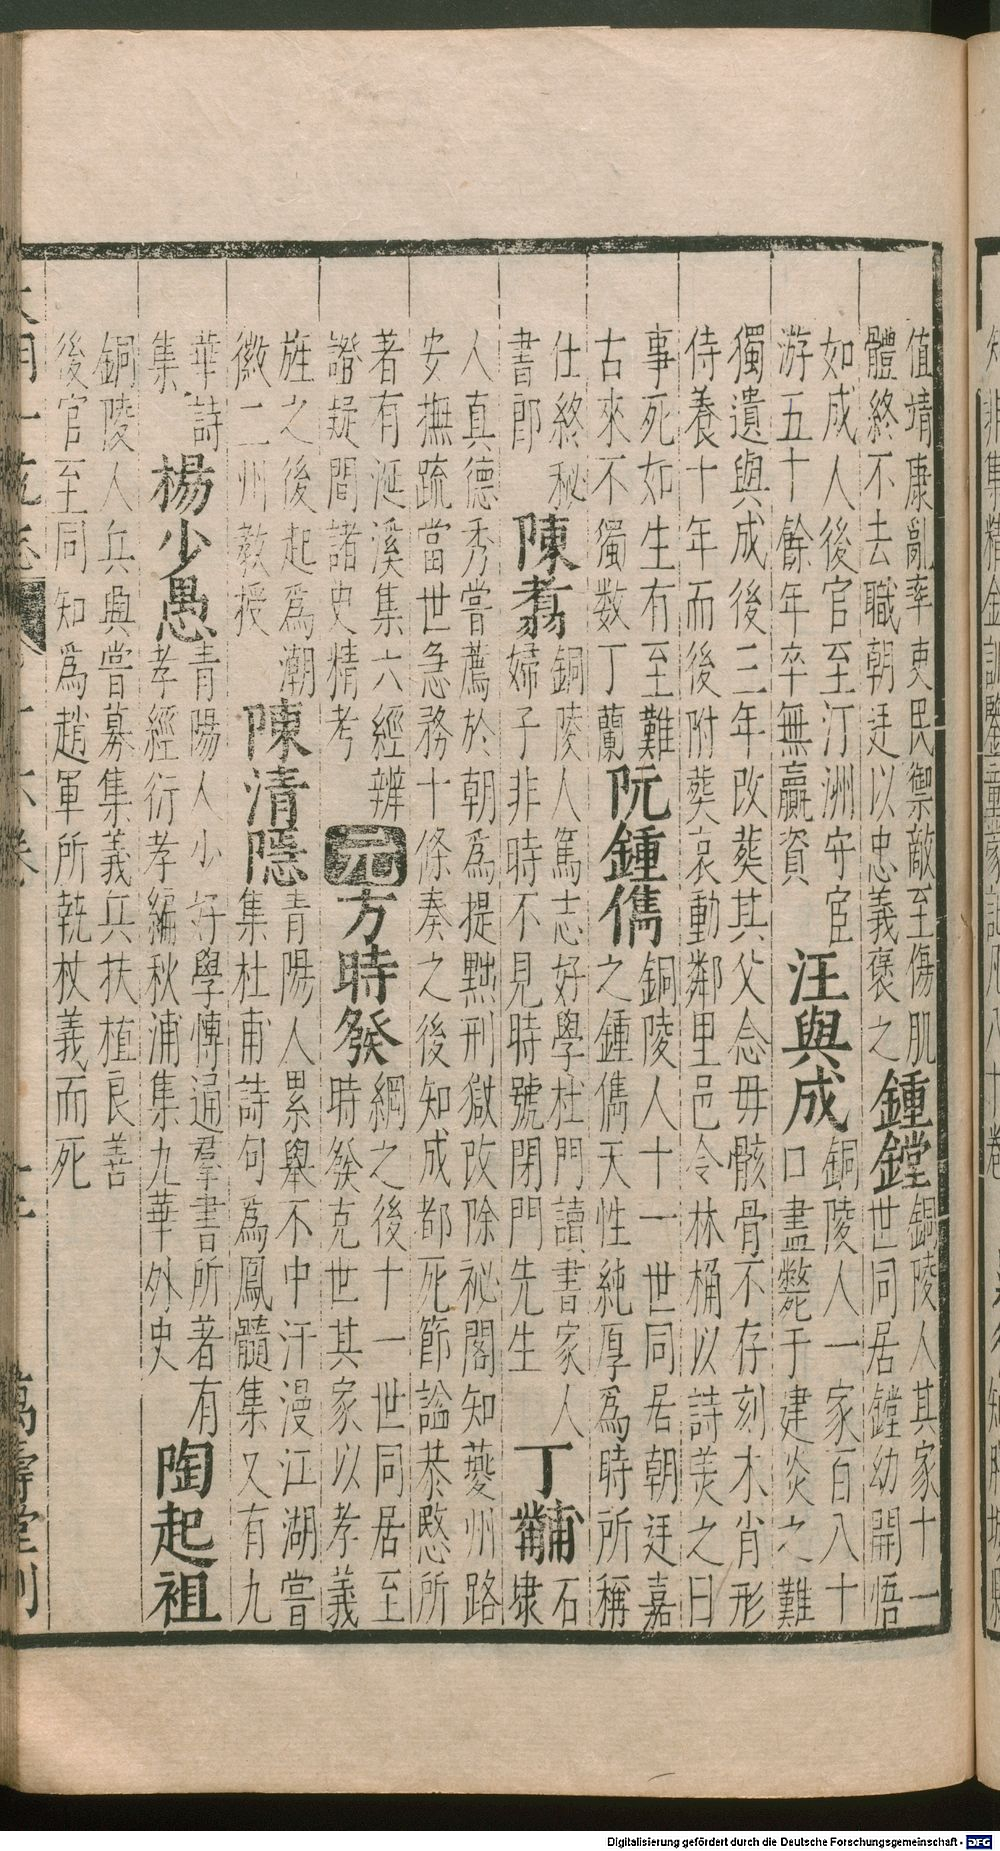 值靖康亂率吏民禦敵至傷肌
體終不去職朝廷以忠義褒之
鍾鏜
銅陵人其家十一
世同居鏜幼開悟
如成人後官至汀洲守宦
游五十餘年卒無贏資
汪與成
銅陵人一家百八十
口盡斃于建炎之難
獨遺與成後三年改葬其父念毋骸骨不存刻木肖形
侍養十年而後附葬哀動鄰里邑令林桶以詩美之曰
事死如生有至難
古來不獨數丁蘭
阮鍾儁
銅陵人十一世同居朝廷嘉
之鍾儁天性純厚爲時所稱
仕終秘
書郎
陳翥
銅陵人篤志好學杜門讀書家人
婦子非時不見時號閉門先生
丁黼
石
埭
人真德秀嘗薦於朝爲提㸃刑獄改除祕閣知夔州路
安撫疏當世急務十條奏之後知成都死節謚恭愍所
著有涎溪集六經辨
證疑間諸史精考
元
方時發
綱之後十一世同居至
時發克世其家以孝義
旌之後起爲潮
徽二州教授
陳清隱
青陽人累舉不中汗漫江湖嘗
集杜甫詩句爲鳳髓集又有九
華詩
集
楊少愚
青陽人少好學博通羣書所著有
孝經衍孝編秋浦集九華外史
陶起祖
銅陵人兵興嘗募集義兵扶植良善
後官至同知爲趙軍所執杖義而死
大明一統志
萬壽堂刊
Digitalisierung gefördert durch die Deutsche Forschungsgemeinschaft - DFG